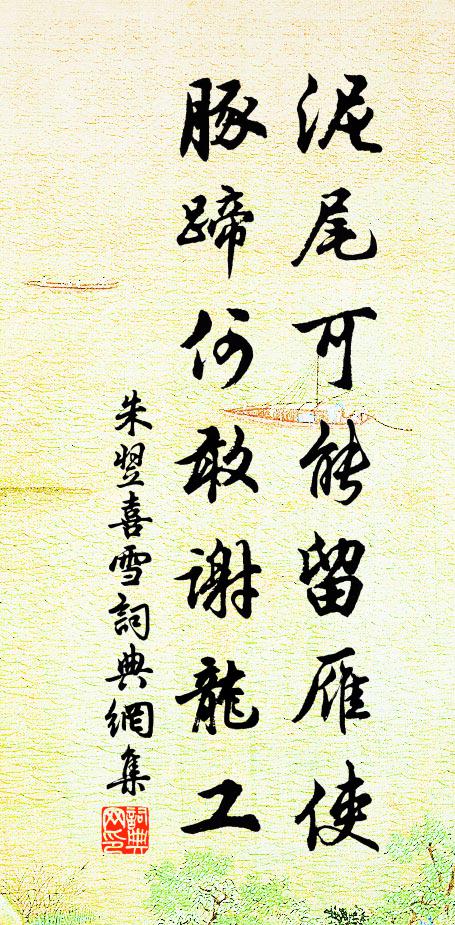 泥尾可能留雁使
豚蹄何敢謝龍工
朱翌喜雪詞典網集
詞典網印